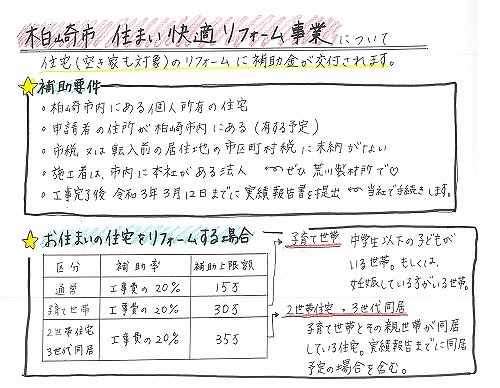 柏崎市 住まい快適リフォーム事業について
住宅(空き家も対象)のリフォームに補助金が交付されます。
補助要件
・柏崎市内にある個人所有の住宅
・申請者の住所が柏崎市内にある(有する予定)
・市税又は転入前の居住地の市区町村税に未納がない
・施工者は、市内に本社がある法人 ぜひ荒川製材所で♡
・工事完了後 令和3年3月12日までに実績報告書を提出 当社で手続きします。
お住まいの住宅をリフォームする場合
区分 補助率 補助上限額
通常 工事費の20% 15万
子育て世帯 工事費の20% 30万
2世帯住宅
3世代同居 工事費の20% 35万
子育て世帯 中学生以下の子どもが
いる世帯。もしくは、
妊娠している方がいる世帯。
2世帯住宅・3世代同居
子育て世帯とその親世帯が同居
している住宅。実績報告までに同居
予定の場合を含む。